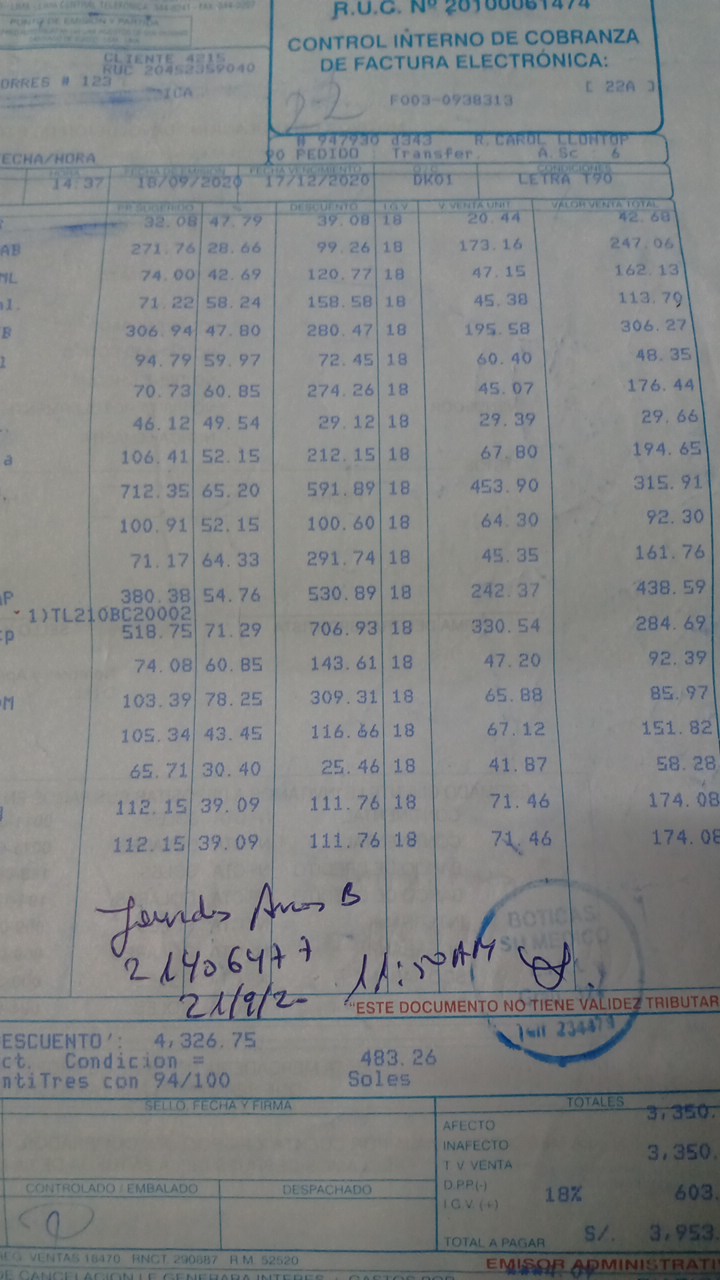 R.U.C. Nº 20100061474
CONTROL INTERNO DE COBRANZA
DE FACTURA ELECTRÓNICA:
[ 22A ]
22
F003-0938313
PUNTO DE EMISIÓN Y PARTIDA
CLIENTE 4215
RUC 20452359040
ORRES # 123
ICA
# 947930 d343 R. CAROL LLONTOP
ECHA/HORA PO PEDIDO Transfer. A.Sc 6
HORA FECHA DE EMISION FECHA VENCIMIENTO O/C CONDICIONES
14:37 18/09/2020 17/12/2020 DK01 LETRA T90
PR SUGERIDO % DESCUENTO I.G.V V. VENTA UNIT. VALOR VENTA TOTAL
32.08 47.79 39.08 18 20.44 42.68
AB 271.76 28.66 99.26 18 173.16 247.06
ML 74.00 42.69 120.77 18 47.15 162.13
al. 71.22 58.24 158.58 18 45.38 113.70
B 306.94 47.80 280.47 18 195.58 306.27
94.79 59.97 72.45 18 60.40 48.35
70.73 60.85 274.26 18 45.07 176.44
46.12 49.54 29.12 18 29.39 29.66
a 106.41 52.15 212.15 18 67.80 194.65
712.35 65.20 591.89 18 453.90 315.91
100.91 52.15 100.60 18 64.30 92.30
71.17 64.33 291.74 18 45.35 161.76
P 380.38 54.76 530.89 18 242.37 438.59
1)TL210BC20002
cp 518.75 71.29 706.93 18 330.54 284.69
74.08 60.85 143.61 18 47.20 92.39
M 103.39 78.25 309.31 18 65.88 85.97
105.34 43.45 116.66 18 67.12 151.82
65.71 30.40 25.46 18 41.87 58.28
112.15 39.09 111.76 18 71.46 174.08
112.15 39.09 111.76 18 71.46 174.08
Lourdes
21406477 11:50 AM
21/9/20
BOTICAS
SU MEDICO
"ESTE DOCUMENTO NO TIENE VALIDEZ TRIBUTAR
ESCUENTO': 4,326.75
ct. Condicion = 483.26
ntiTres con 94/100 Soles
SELLO, FECHA Y FIRMA
TOTALES
AFECTO 3,350.
INAFECTO
T. V. VENTA 3,350.
D.P.P.(-)
I.G.V. (+) 18% 603.
TOTAL A PAGAR S/. 3,953.
CONTROLADO / EMBALADO DESPACHADO
REG. VENTAS 18470 RNCT. 290887 R.M. 52520
EMISOR ADMINISTRATI